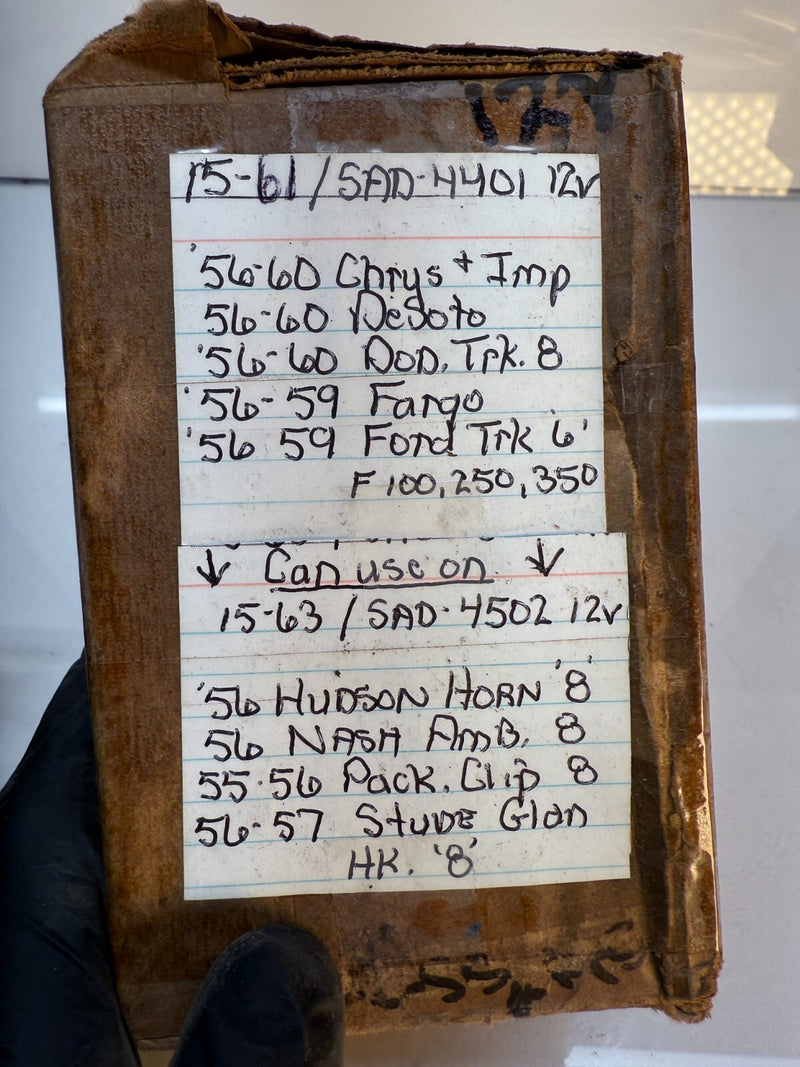 15-61 / SAD-4401 12v
'56-60 Chrys + Imp
56-60 DeSoto
'56-60 DOD. Trk. 8
'56-59 Fargo
'56 59 Ford Trk 6'
F 100, 250, 350
↓ Can use on ↓
15-63 / SAD-4502 12v
'56 HUDSON HORN '8'
56 NASH AMB. 8
55-56 Pack. Clip 8
56-57 STUDE Gldn
HK. '8'